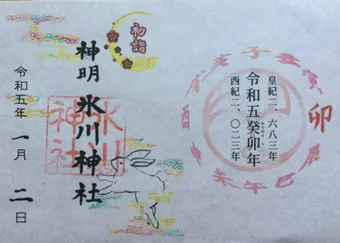 卯
子丑寅辰巳午未申酉戌亥
皇紀二、六八三年
令和五癸卯年
西紀二、〇二三年
初詣
神明 氷川神社
氷川
神社
令和五年一月二日